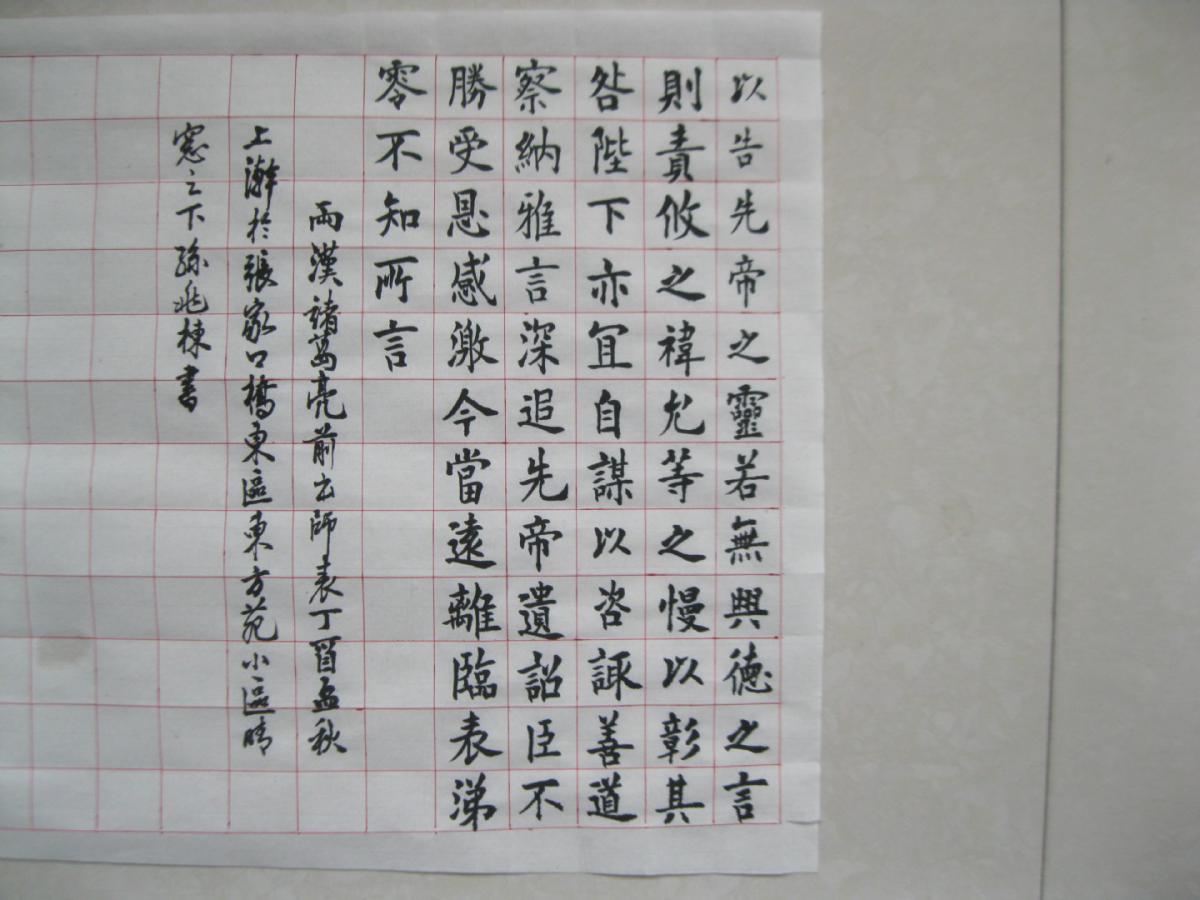 以告先帝之靈若無興德之言
則責攸之禕允等之慢以彰其
咎陛下亦宜自謀以咨諏善道
察納雅言深追先帝遺詔臣不
勝受恩感激今當遠離臨表涕
零不知所言
兩漢諸葛亮前出師表丁酉孟秋
上澣於張家口橋東區東方苑小區晴
窓之下孫兆棟書